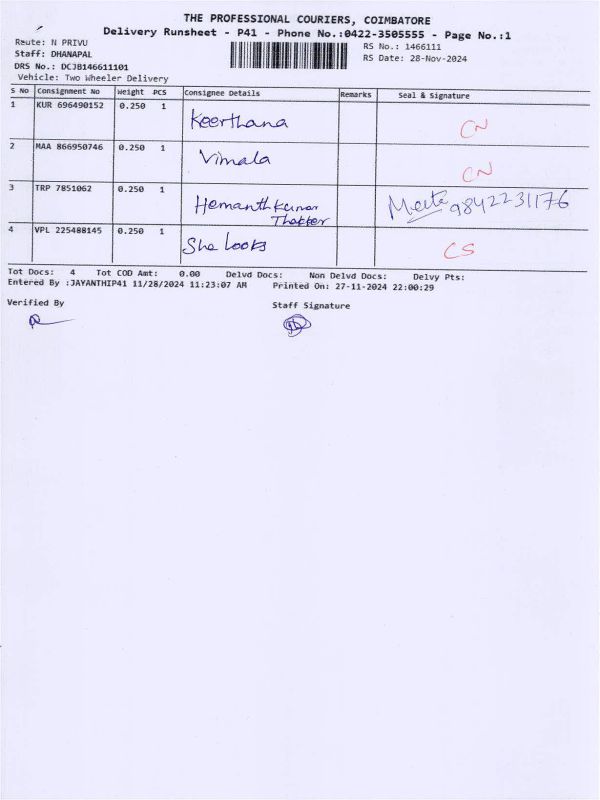 THE PROFESSIONAL COURIERS, COIMBATORE
Delivery Runsheet - P41 - Phone No.:0422-3505555 - Page No.:1
Route: N PRIVU
RS No.: 1466111
Staff: DHANAPAL
RS Date: 28-Nov-2024
DRS No.: DCJB146611101
Vehicle: Two Wheeler Delivery
S No Consignment No Weight PCS Consignee Details Remarks Seal & Signature
1 KUR 696490152 0.250 1 Keerthana CN
2 MAA 866950746 0.250 1 Vimala CN
3 TRP 7851062 0.250 1 Hemanth Kumar Thakker 9842231176
4 VPL 225488145 0.250 1 She Looks CS
Tot Docs: 4 Tot COD Amt: 0.00 Delvd Docs: Non Delvd Docs: Delvy Pts:
Entered By :JAYANTHIP41 11/28/2024 11:23:07 AM Printed On: 27-11-2024 22:00:29
Verified By Staff Signature